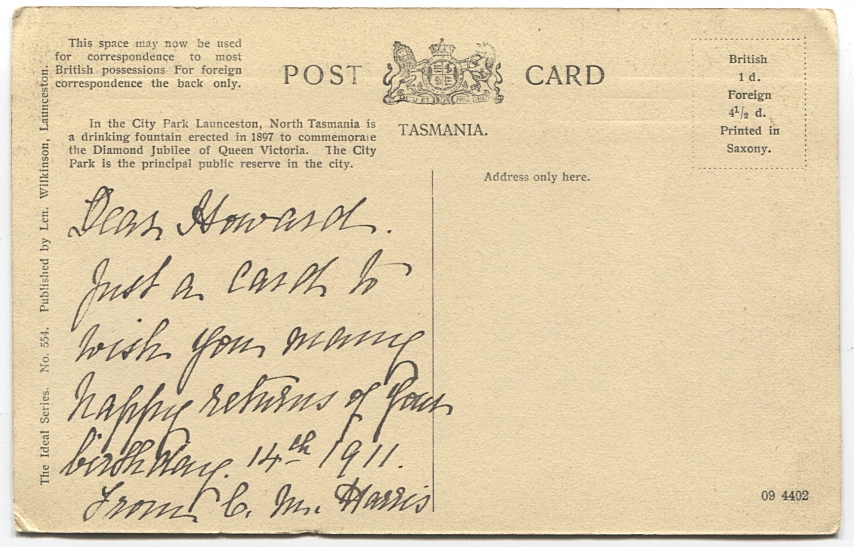 This space may now be used
for correspondence to most
British possessions For foreign
correspondence the back only.
POST CARD
TASMANIA.
British
1 d.
Foreign
4½ d.
Printed in
Saxony.
In the City Park Launceston, North Tasmania is
a drinking fountain erected in 1897 to commemorate
the Diamond Jubilee of Queen Victoria. The City
Park is the principal public reserve in the city.
Address only here.
The Ideal Series. No. 554. Published by Len. Wilkinson, Launceston.
Dear Howard.
Just a card to
wish you many
happy returns of your
birthday. 14th 1911.
From C. M. Harris
09 4402